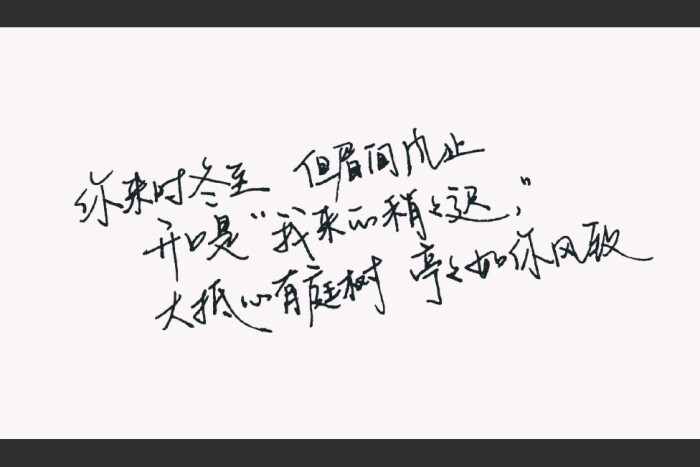 你来时冬至 但眉间风止
开口是“我来的稍々迟，”
大抵心有庭树 亭々如你风致